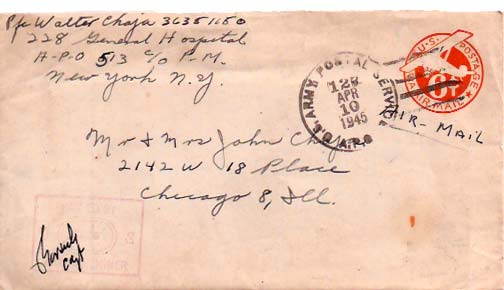 Pfc Walter Chaja 36351150
228 General Hospital
A-P-O 513 c/o P.M.
New York N.Y.
U.S. ARMY POSTAL SERVICE
APR
10
1945
A.P.O.
U.S. POSTAGE
6¢
VIA AIR MAIL
AIR-MAIL
Mr & Mrs John Chaja
2142 W 18 Place
Chicago 8, Ill.
Capt